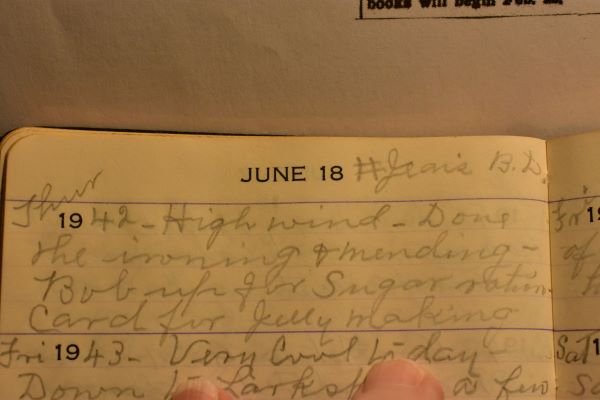 books will begin Feb.
JUNE 18 # Jean's B.D.
Thur
1942 - High wind - Done
the ironing & mending -
Bob up for Sugar ration
Card for Jelly making
Fri 1943 - Very Cool to day -
Down to a few
Fri 19
of
Sat 1
So